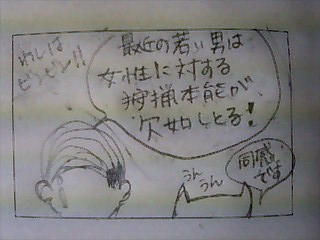 最近の若い男は
女性に対する
狩猟本能が
欠如しとる!
わしは
ビンビン!!
うん
うん
同感
です